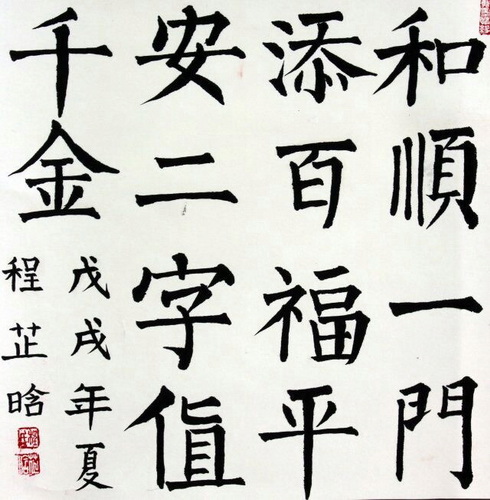 和順一門
添百福平
安二字值
千金
戊戌年夏
程芷晗